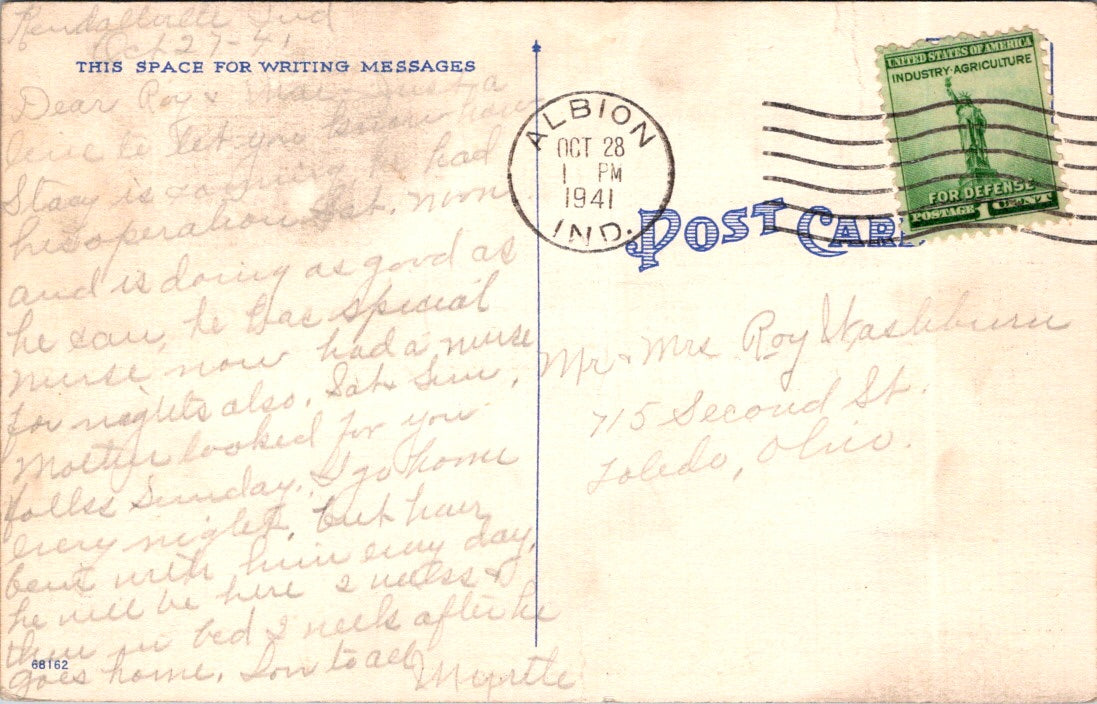 Kendallville Ind
Oct 27-41
THIS SPACE FOR WRITING MESSAGES
Dear Roy & Mae, Just a
line to let you know how
Stacy is coming he had
his operation Sat. morn
and is doing as good as
he can, he has special
nurse now had a nurse
for nights also, Sat. Sun,
Mother looked for you
folks Sunday. I go home
every night, but have
been with him every day,
he will be here 2 weeks &
then in bed 2 weeks after he
goes home. Love to all
Myrtle
68162
ALBION
OCT 28
1 PM
1941
IND.
UNITED STATES OF AMERICA
INDUSTRY·AGRICULTURE
FOR DEFENSE
POSTAGE 1 CENT
POST CARD
Mr & Mrs Roy Washburn
715 Second St.
Toledo, Ohio.